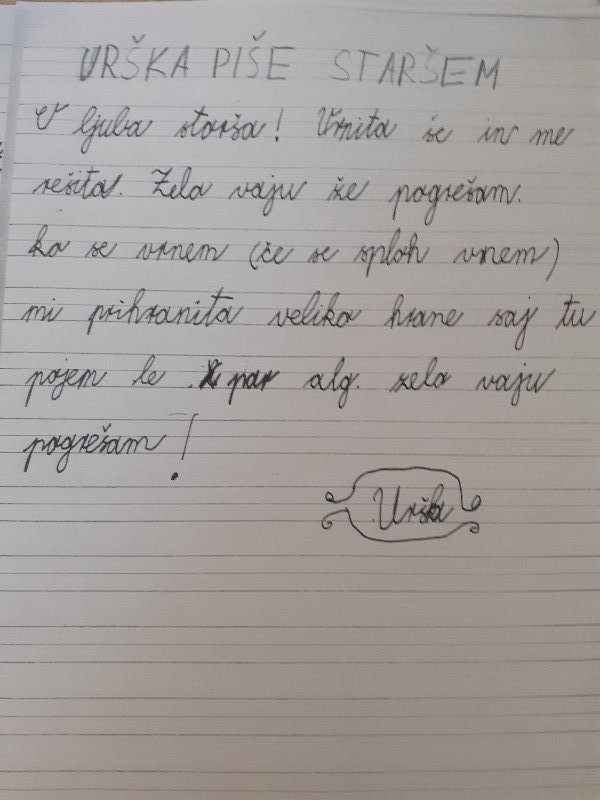 URŠKA PIŠE STARŠEM
ljuba starša! Vrnita se in me
rešita. Zelo vaju že pogrešam.
ko se vrnem (če se sploh vrnem)
mi prihranita veliko hrane saj tu
pojem le par alg. zelo vaju
pogrešam!
Urška